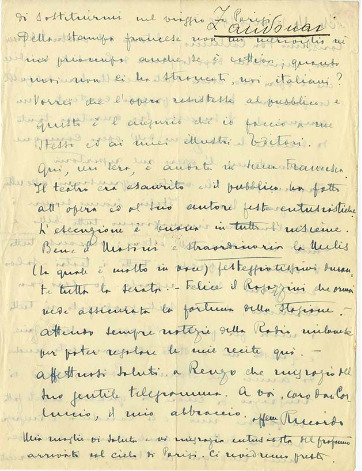 di sostituirmi nel viaggio di Parigi.
Zandonai
Della stampa francese non mi meraviglio nè
mi preoccupo anche se è cattiva; quando
mai non ci ha stroncati, noi italiani?
Vorrei che l'opera resistesse al pubblico e
questo è l'augurio che io faccio a me
stesso ed ai miei illustri
Qui, ieri sera, è andata in scena Francesca.
Il teatro era esaurito e il pubblico ha fatto
all'opera ed al suo autore feste entusiastiche.
L'esecuzione è buona in tutto l'insieme.
Bene il Masini e straordinaria la Melis
(la quale è molto in voce) festeggiatissimi durante
tutta la serata. Felice il che ormai
vede assicurata la fortuna della stagione.
Attendo sempre notizie della Radio milanese
per poter regolare le mie recite qui.
Affettuosi saluti a Renzo che ringrazio del
suo gentile telegramma. A voi, caro don
il mio abbraccio. Riccardo
Mia moglie vi saluta e vi ringrazia entusiasta del profumo
arrivato dal cielo di Parigi. Ci rivedremo presto.